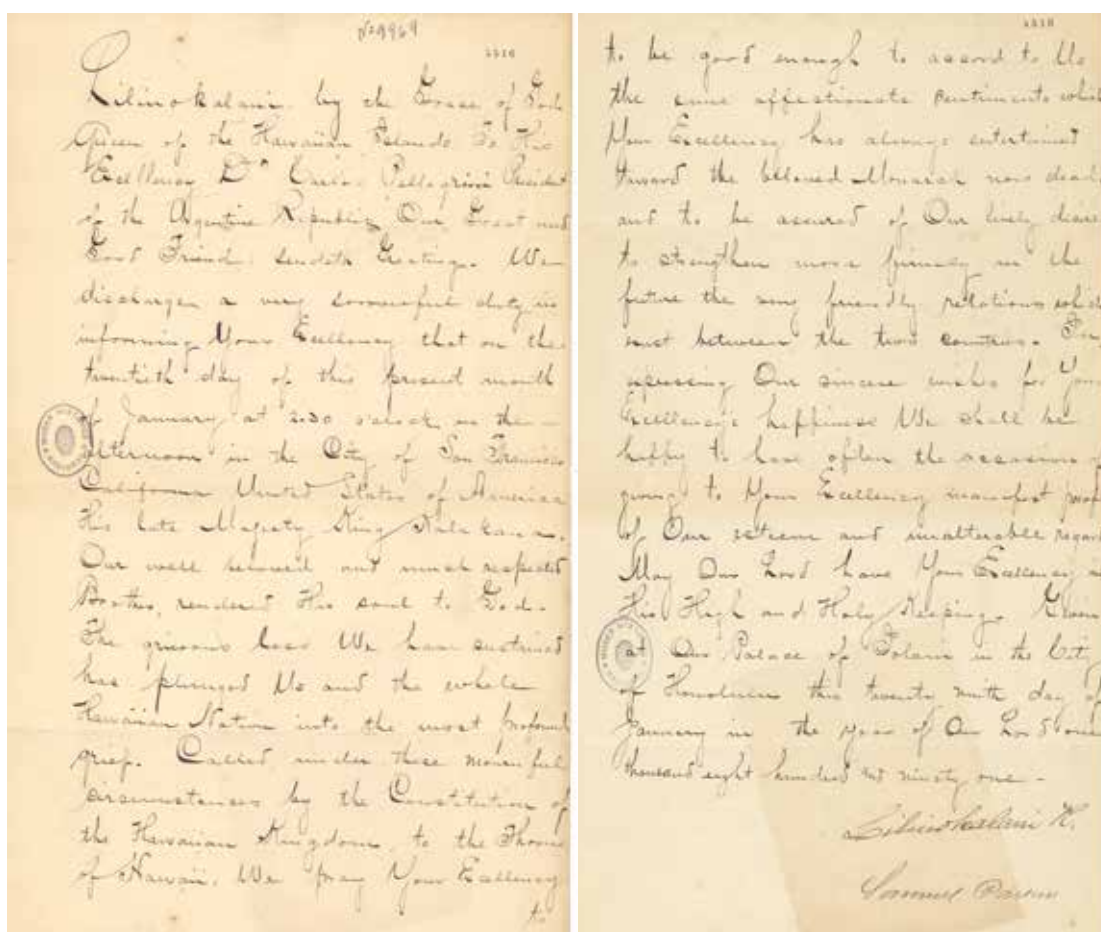 No 9969
Liliuokalani by the Grace of God
Queen of the Hawaiian Islands To His
Excellency Dn Carlos Pellegrini President
of the Argentine Republic, Our Great and
Good Friend: sendeth Greeting. We
discharge a very sorrowful duty in
informing Your Excellency that on the
twentieth day of this present month
of January at 2.30 o'clock in the
afternoon in the City of San Francisco
California United States of America
His late Majesty King Kalakaua.
Our well beloved and much respected
Brother, rendered His soul to God.
The grievous loss We have sustained
has plunged Us and the whole
Hawaiian Nation into the most profound
grief. Called under these mournful
circumstances by the Constitution of
the Hawaiian Kingdom, to the Throne
of Hawaii, We pray Your Excellency
to
to be good enough to accord to Us
the same affectionate sentiments which
Your Excellency has always entertained
toward the beloved Monarch now dead
and to be assured of Our lively desire
to strengthen more firmly in the
future the very friendly relations which
exist between the two countries.
expressing Our sincere wishes for Your
Excellency's happiness We shall be
happy to have often the occasion of
giving to Your Excellency manifest proof
of Our esteem and unalterable regard
May Our Lord have Your Excellency in
His High and Holy Keeping. Given
at Our Palace of Iolani in the City
of Honolulu this twenty ninth day of
January in the year of Our Lord one
thousand eight hundred and ninety one -
Liliuokalani R.
Samuel Parker